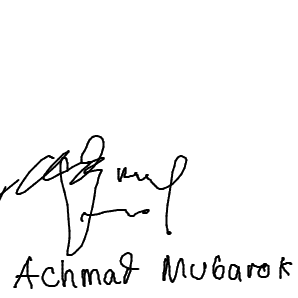 Achmad Mubarok